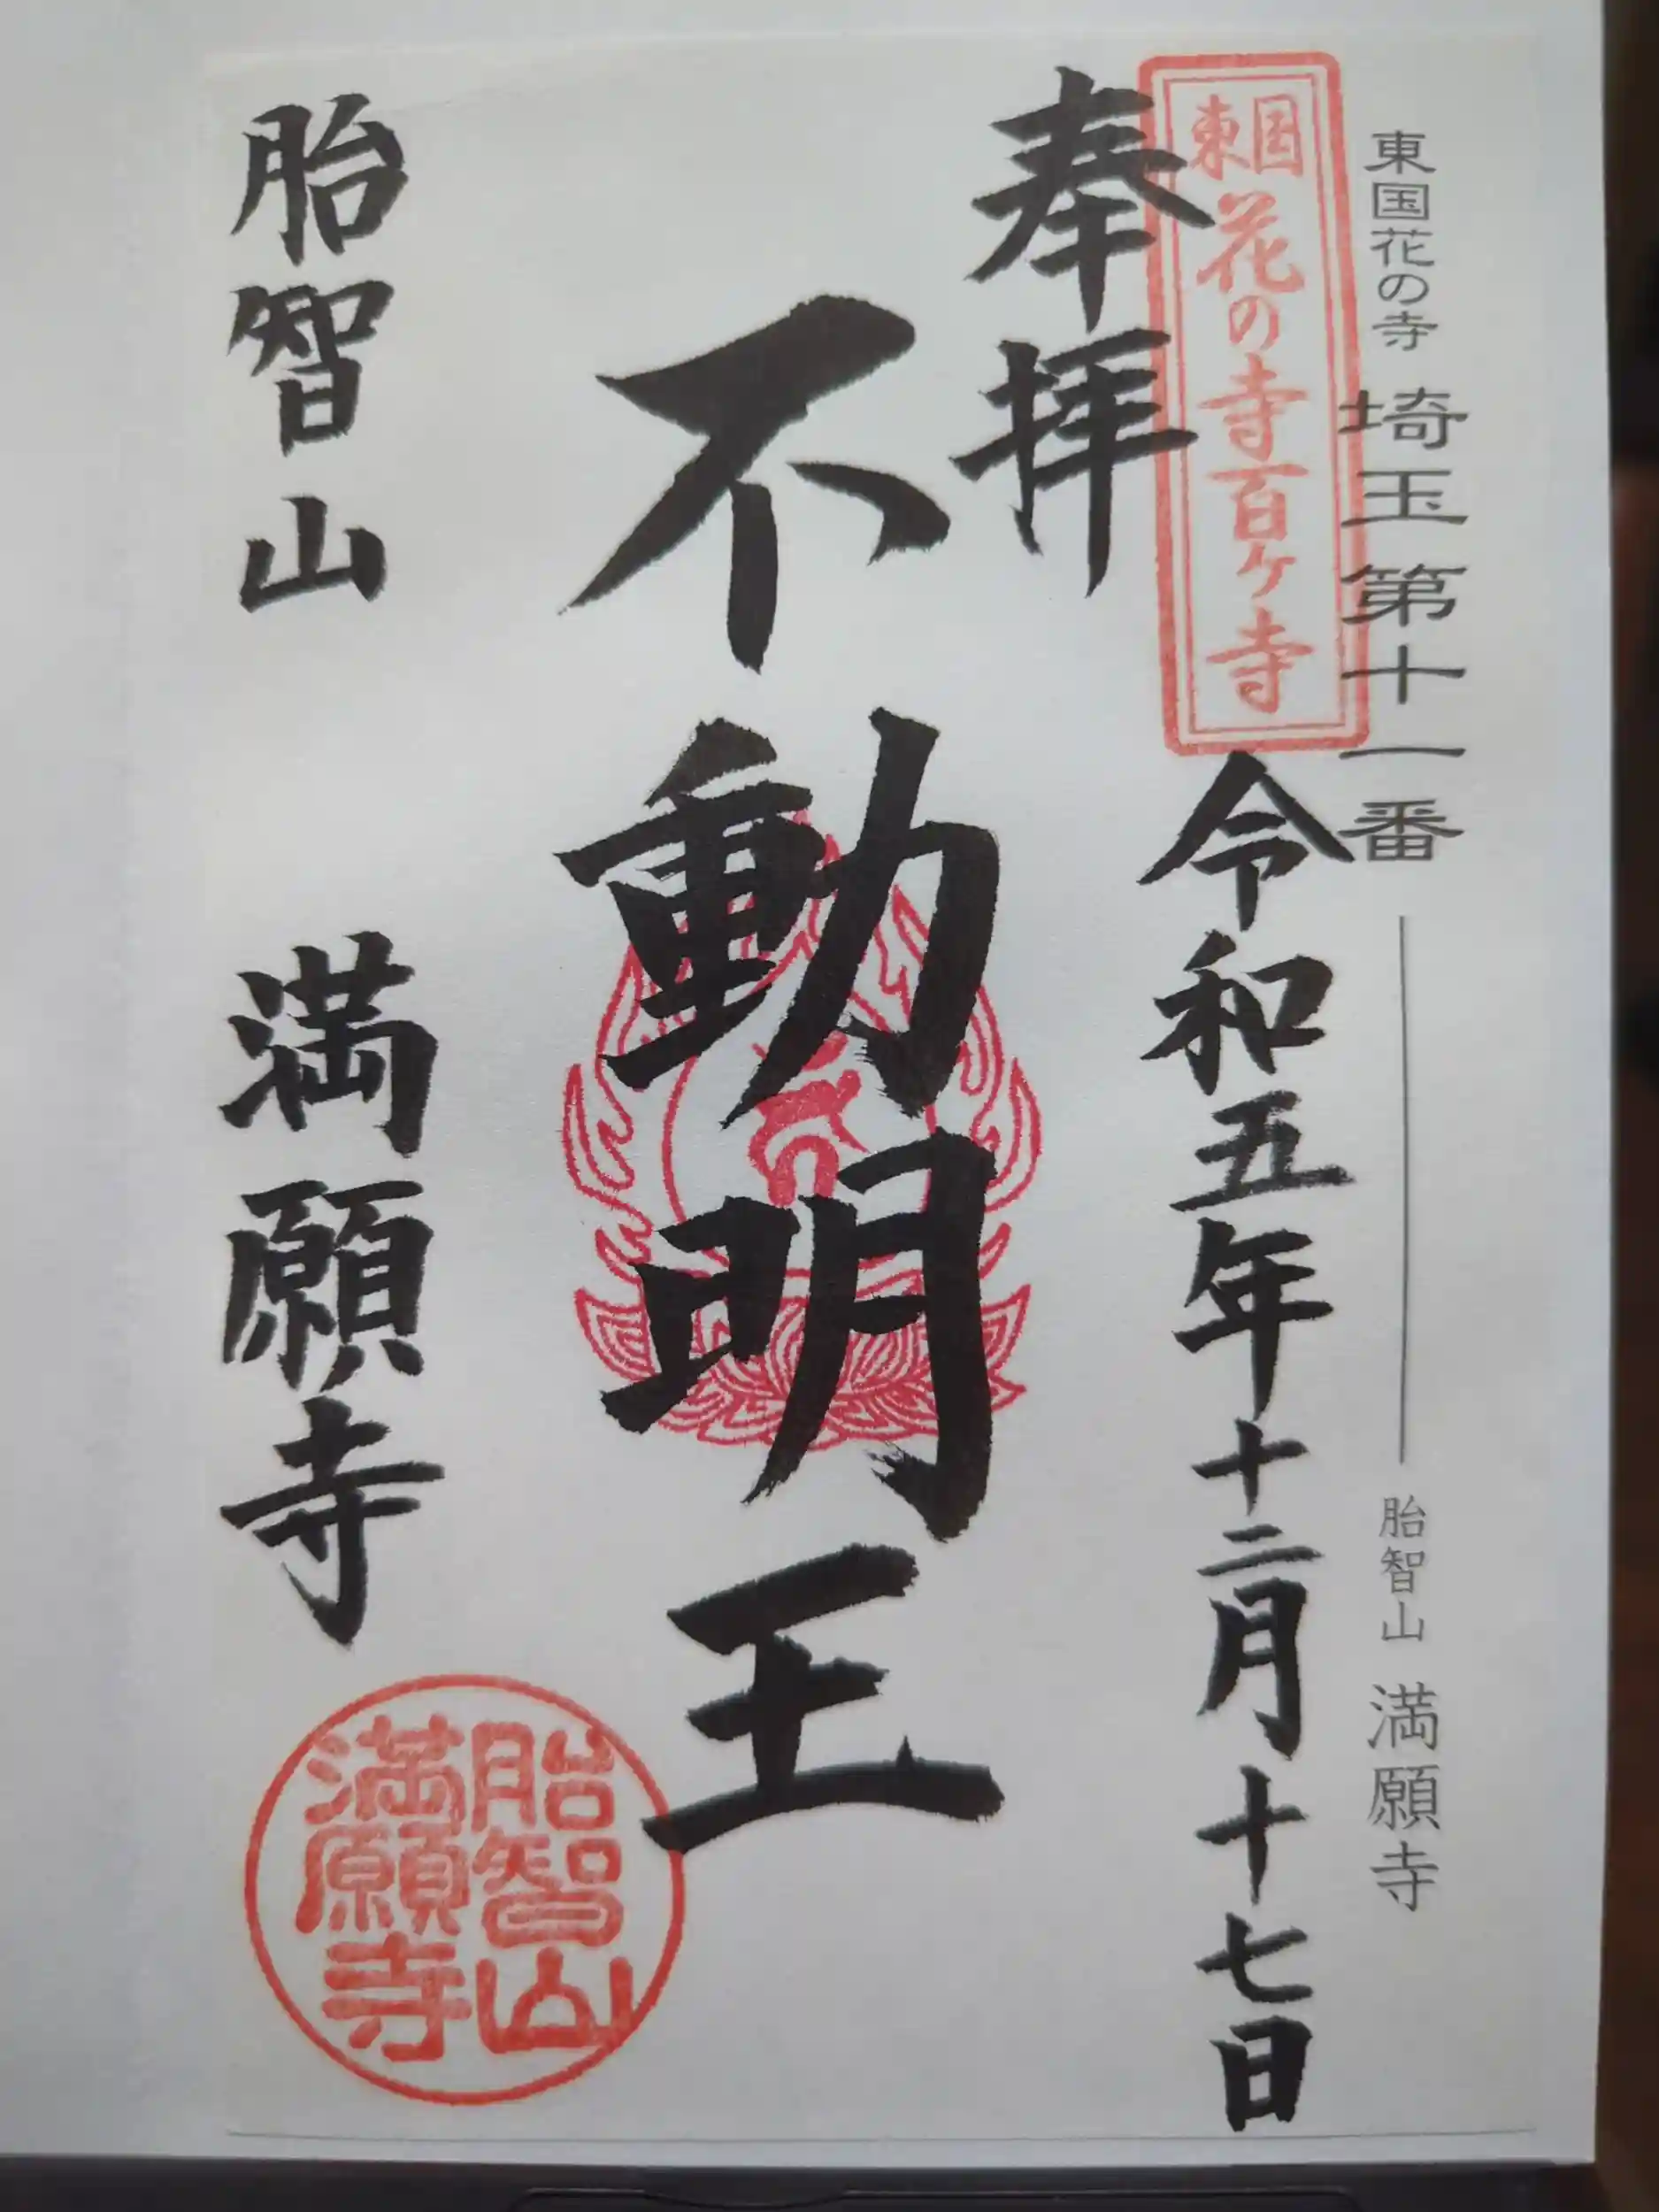 東国花の寺 埼玉第十一番 胎智山 満願寺
東国花の寺百ヶ寺
奉拝
令和五年十二月十七日
不動明王
胎智山 満願寺
胎智山
満願寺